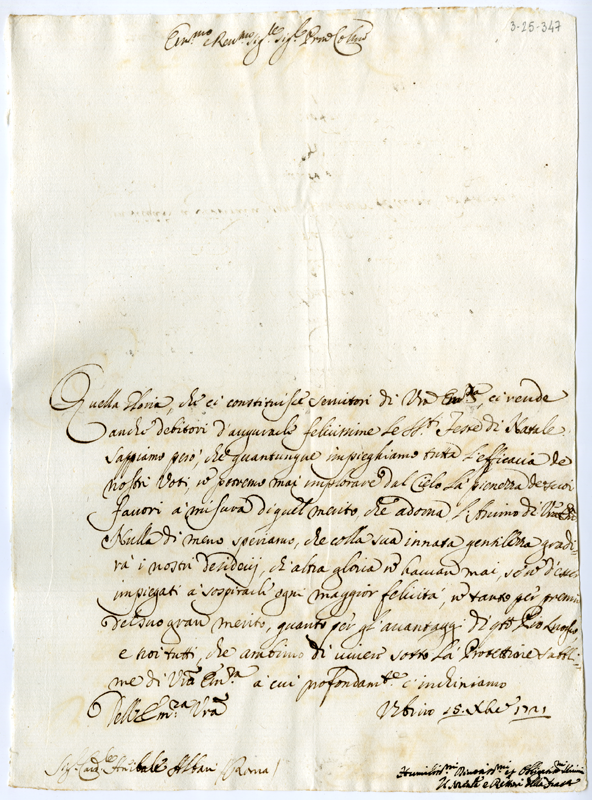 3-25-347
Em.mo e Rev.mo Sig.re Sig.re Pron Col.mo
Quella gloria, che ci constituisce servitori di Vra Em.za ci rende
anche debitori d'augurarle felicissime le S.te Feste di Natale.
Sappiamo però, che quantunque impieghiamo tutta l'efficacia de
nostri Voti non potremo mai implorare dal Cielo la pienezza de suoi
favori a misura di quel merito, che adorna l'Animo di Vra
Nulla di meno speriamo, che colla sua innata gentilezza gradi-
rà i nostri desiderij, che altra gloria non hanno mai, se non d'esser
impiegati a sospirarle ogni maggior felicità, non tanto per premio
del suo gran merito, quanto per gl'avantaggi di q.to Pio Luogo,
e noi tutti, che ambimo di vivere sotto la Protettione subli-
me di Vra Em.za a cui profondam.te c'inchiniamo
Dell'Em.za Vra Urbino 15 Xbre 1721
Sig. Card.le Annibale Albani (Roma)
Humiliss.mi Devotiss.mi et Obligatiss.mi